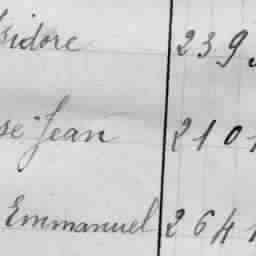 sidore 239
se Jean 2101
Emmanuel 2641